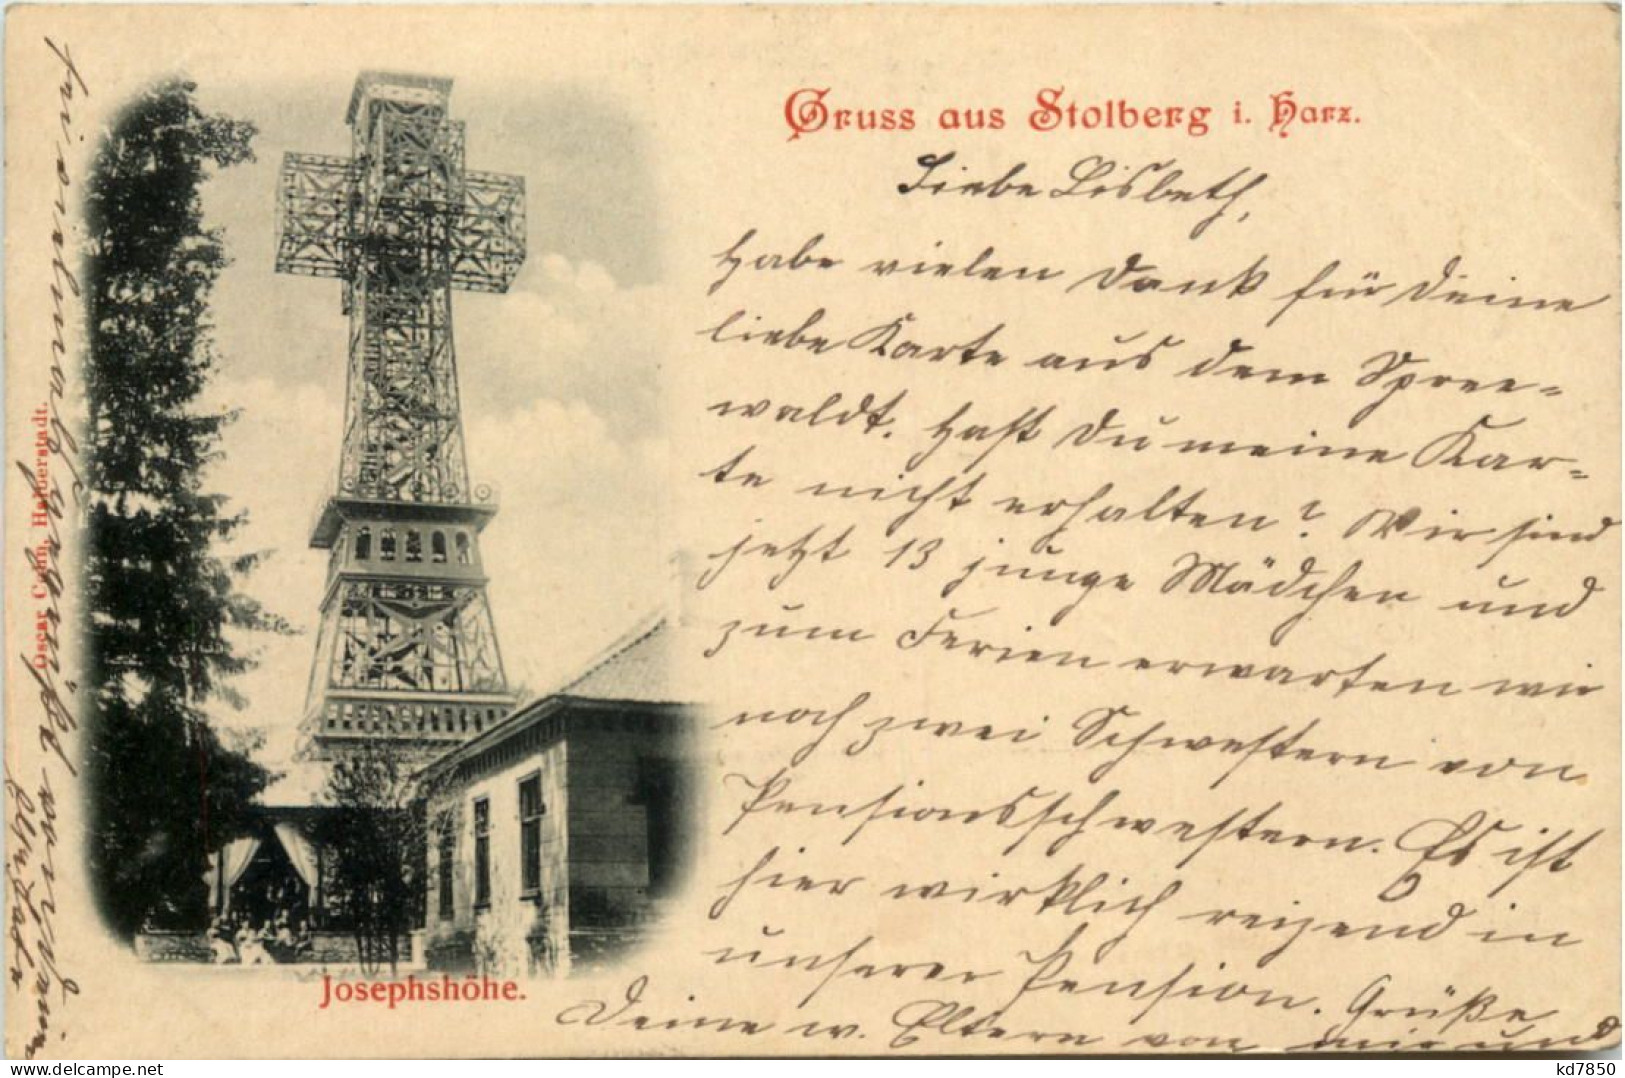 Gruss aus Stolberg i. Harz.
Liebe Lisbeth,
Habe vielen Dank für Deine
liebe Karte aus dem Spree-
waldt. Hast Du meine Kar-
te nicht erhalten? Wir sind
jetzt 13 junge Mädchen und
zum Ferien erwarten wir
noch zwei Schwestern von
Pensionsschwestern. Es ist
hier wirklich reizend in
unserer Pension. Grüße
Deine w. Eltern von mir und
sei vielmals gegrüßt von
Josephshöhe.
Oscar Cohn, Halberstadt.
kd7850